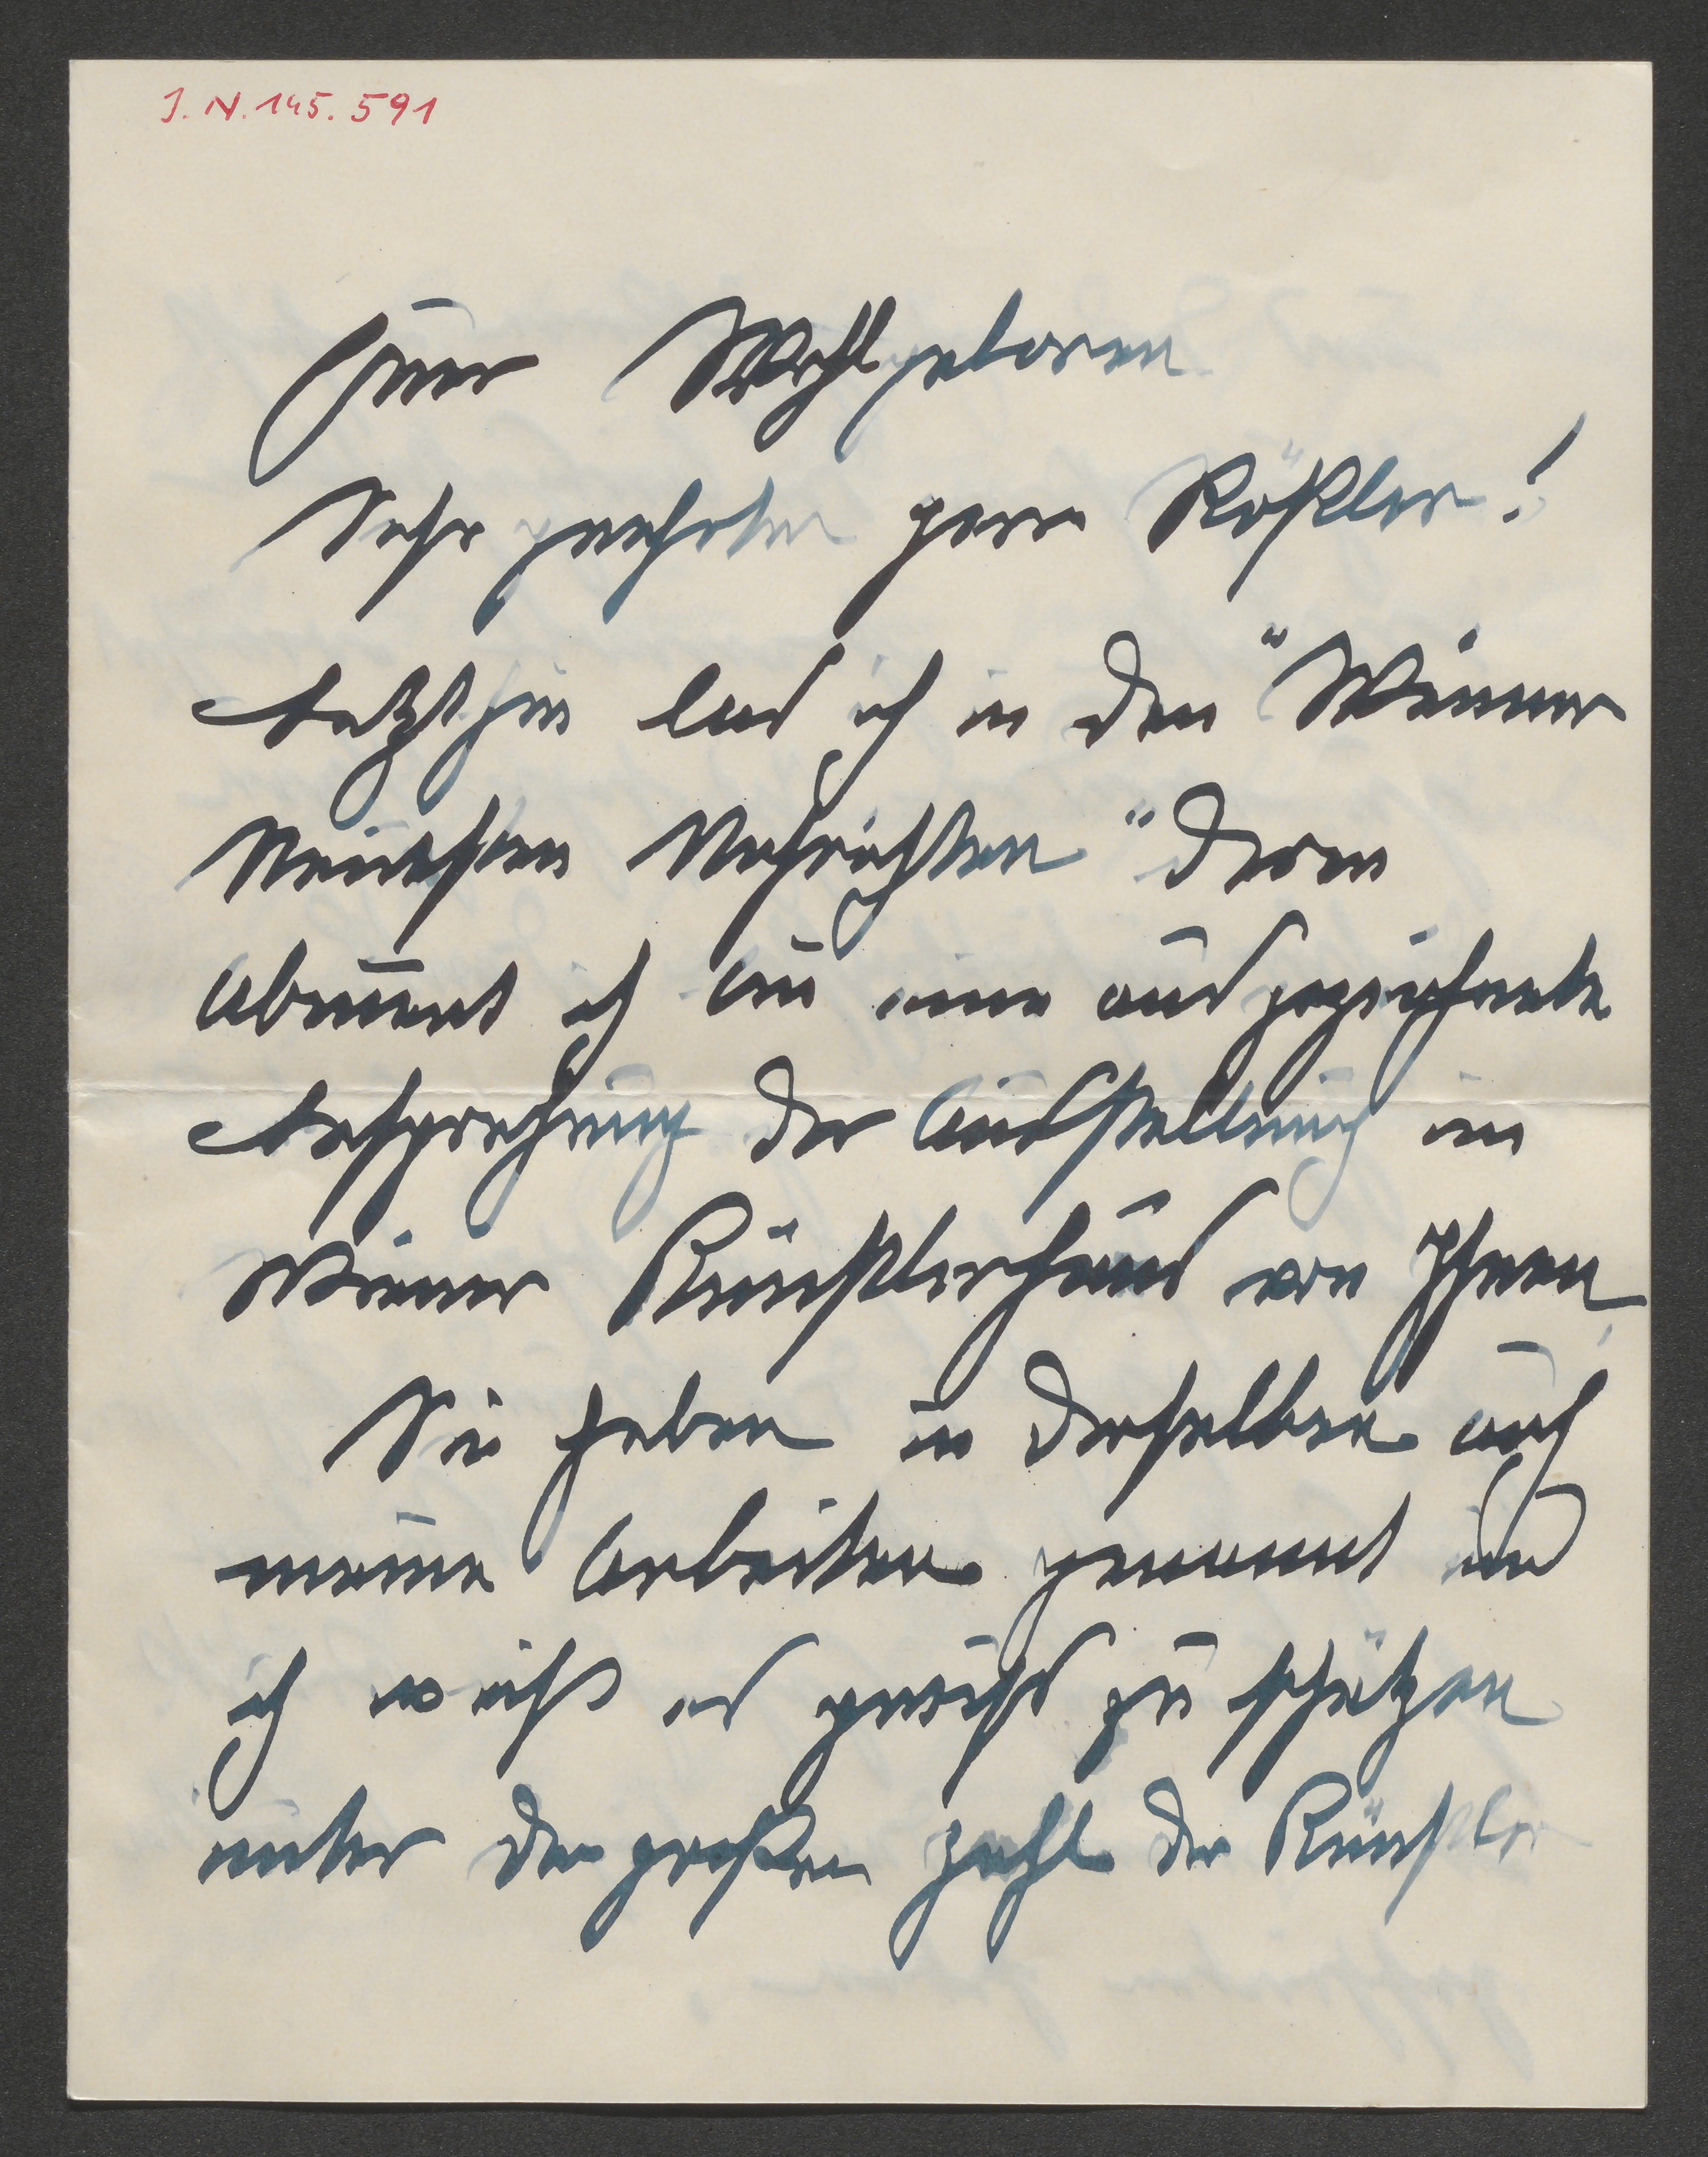 J. N. 145.591
Euer Wohlgeboren
Sehr geehrter Herr Rößler!
Letzthin las ich in den "Wiener
Neuesten Nachrichten" deren
Abonnent ich bin eine ausgezeichnete
Besprechung der Ausstellung im
Wiener Künstlerhaus von Ihnen.
Sie haben in derselben auch
meine Arbeiten genannt und
ich weiß es gewiß zu schätzen
unter der großen Zahl der Künstler